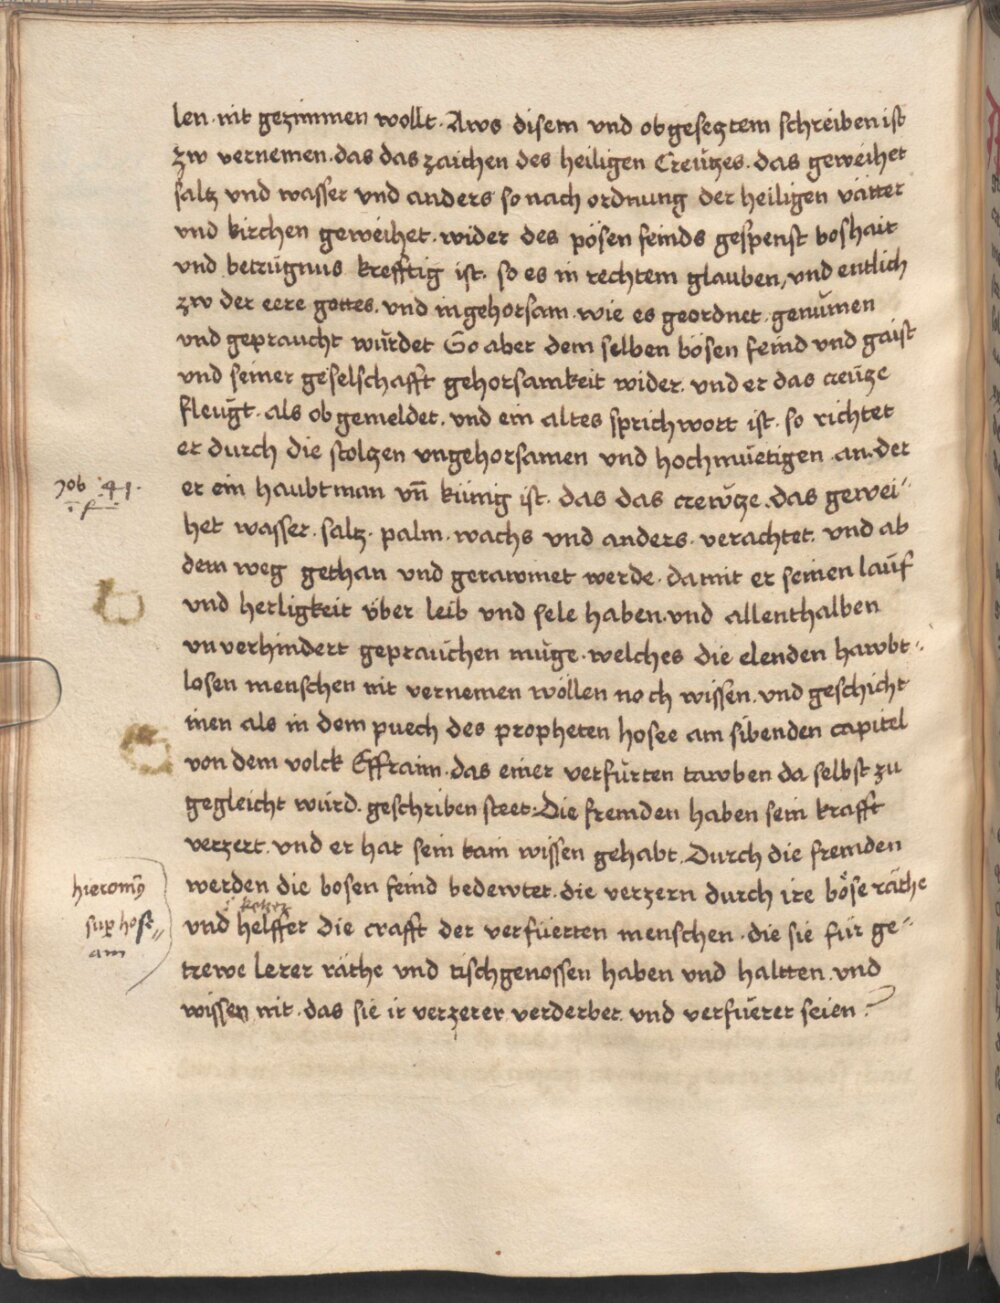 len nit gezimmen wollt. Aws disem vnd obgeseztem schreiben ist
zw vernemen. das das zaichen des heiligen Creützes. das geweihet
saltz vnd wasser vnd anders so nach ordnung der heiligen vätter
vnd kirchen geweihet. wider des pösen feinds gespenst boshait
vnd betrügnus krefftig ist. so es in rechtem glauben, vnd entlich
zw der eere gottes. vnd in gehorsam. wie es geordnet. genümen
vnd gepraucht würdet So aber dem selben bösen feind vnd gaist
vnd seiner geselschafft gehorsamkeit wider. vnd er das creüze
fleügt. als ob gemeldet. vnd ein altes sprichwort ist. so richtet
er durch die stolzen vngehorsamen vnd hochmüetigen an. der
Job .41.
er ein haubtman vn̄ künig ist. das das creẅtze. das gewei-
het wasser. saltz. palm. wachs vnd anders. verachtet. vnd ab
dem weg gethan vnd gerawmet werde. damit er seinen lauf
vnd herligkeit über leib vnd sele haben. vnd allenthalben
vnverhindert geprauchen müge. welches die elenden hawbt-
losen menschen nit vernemen wöllen noch wissen. vnd geschicht
inen als in dem puech des propheten hosee am sibenden capitel
von dem volck Effraim. das einer verfürten tawben da selbst zu
gegleicht würd. geschriben steet. Die fremden haben sein krafft
verzert. vnd er hat sein kain wissen gehabt. Durch die fremden
hieromȳ
sup hose-
am
werden die bosen feind bedewtet. die verzern durch ire böse räthe
ketzer
vnd helffer die crafft der verfüerten menschen. die sie für ge-
trewe lerer räthe vnd tischgenossen haben vnd haltten. vnd
wissen nit. das sie ir verzerer verderber vnd verfüerer seien.